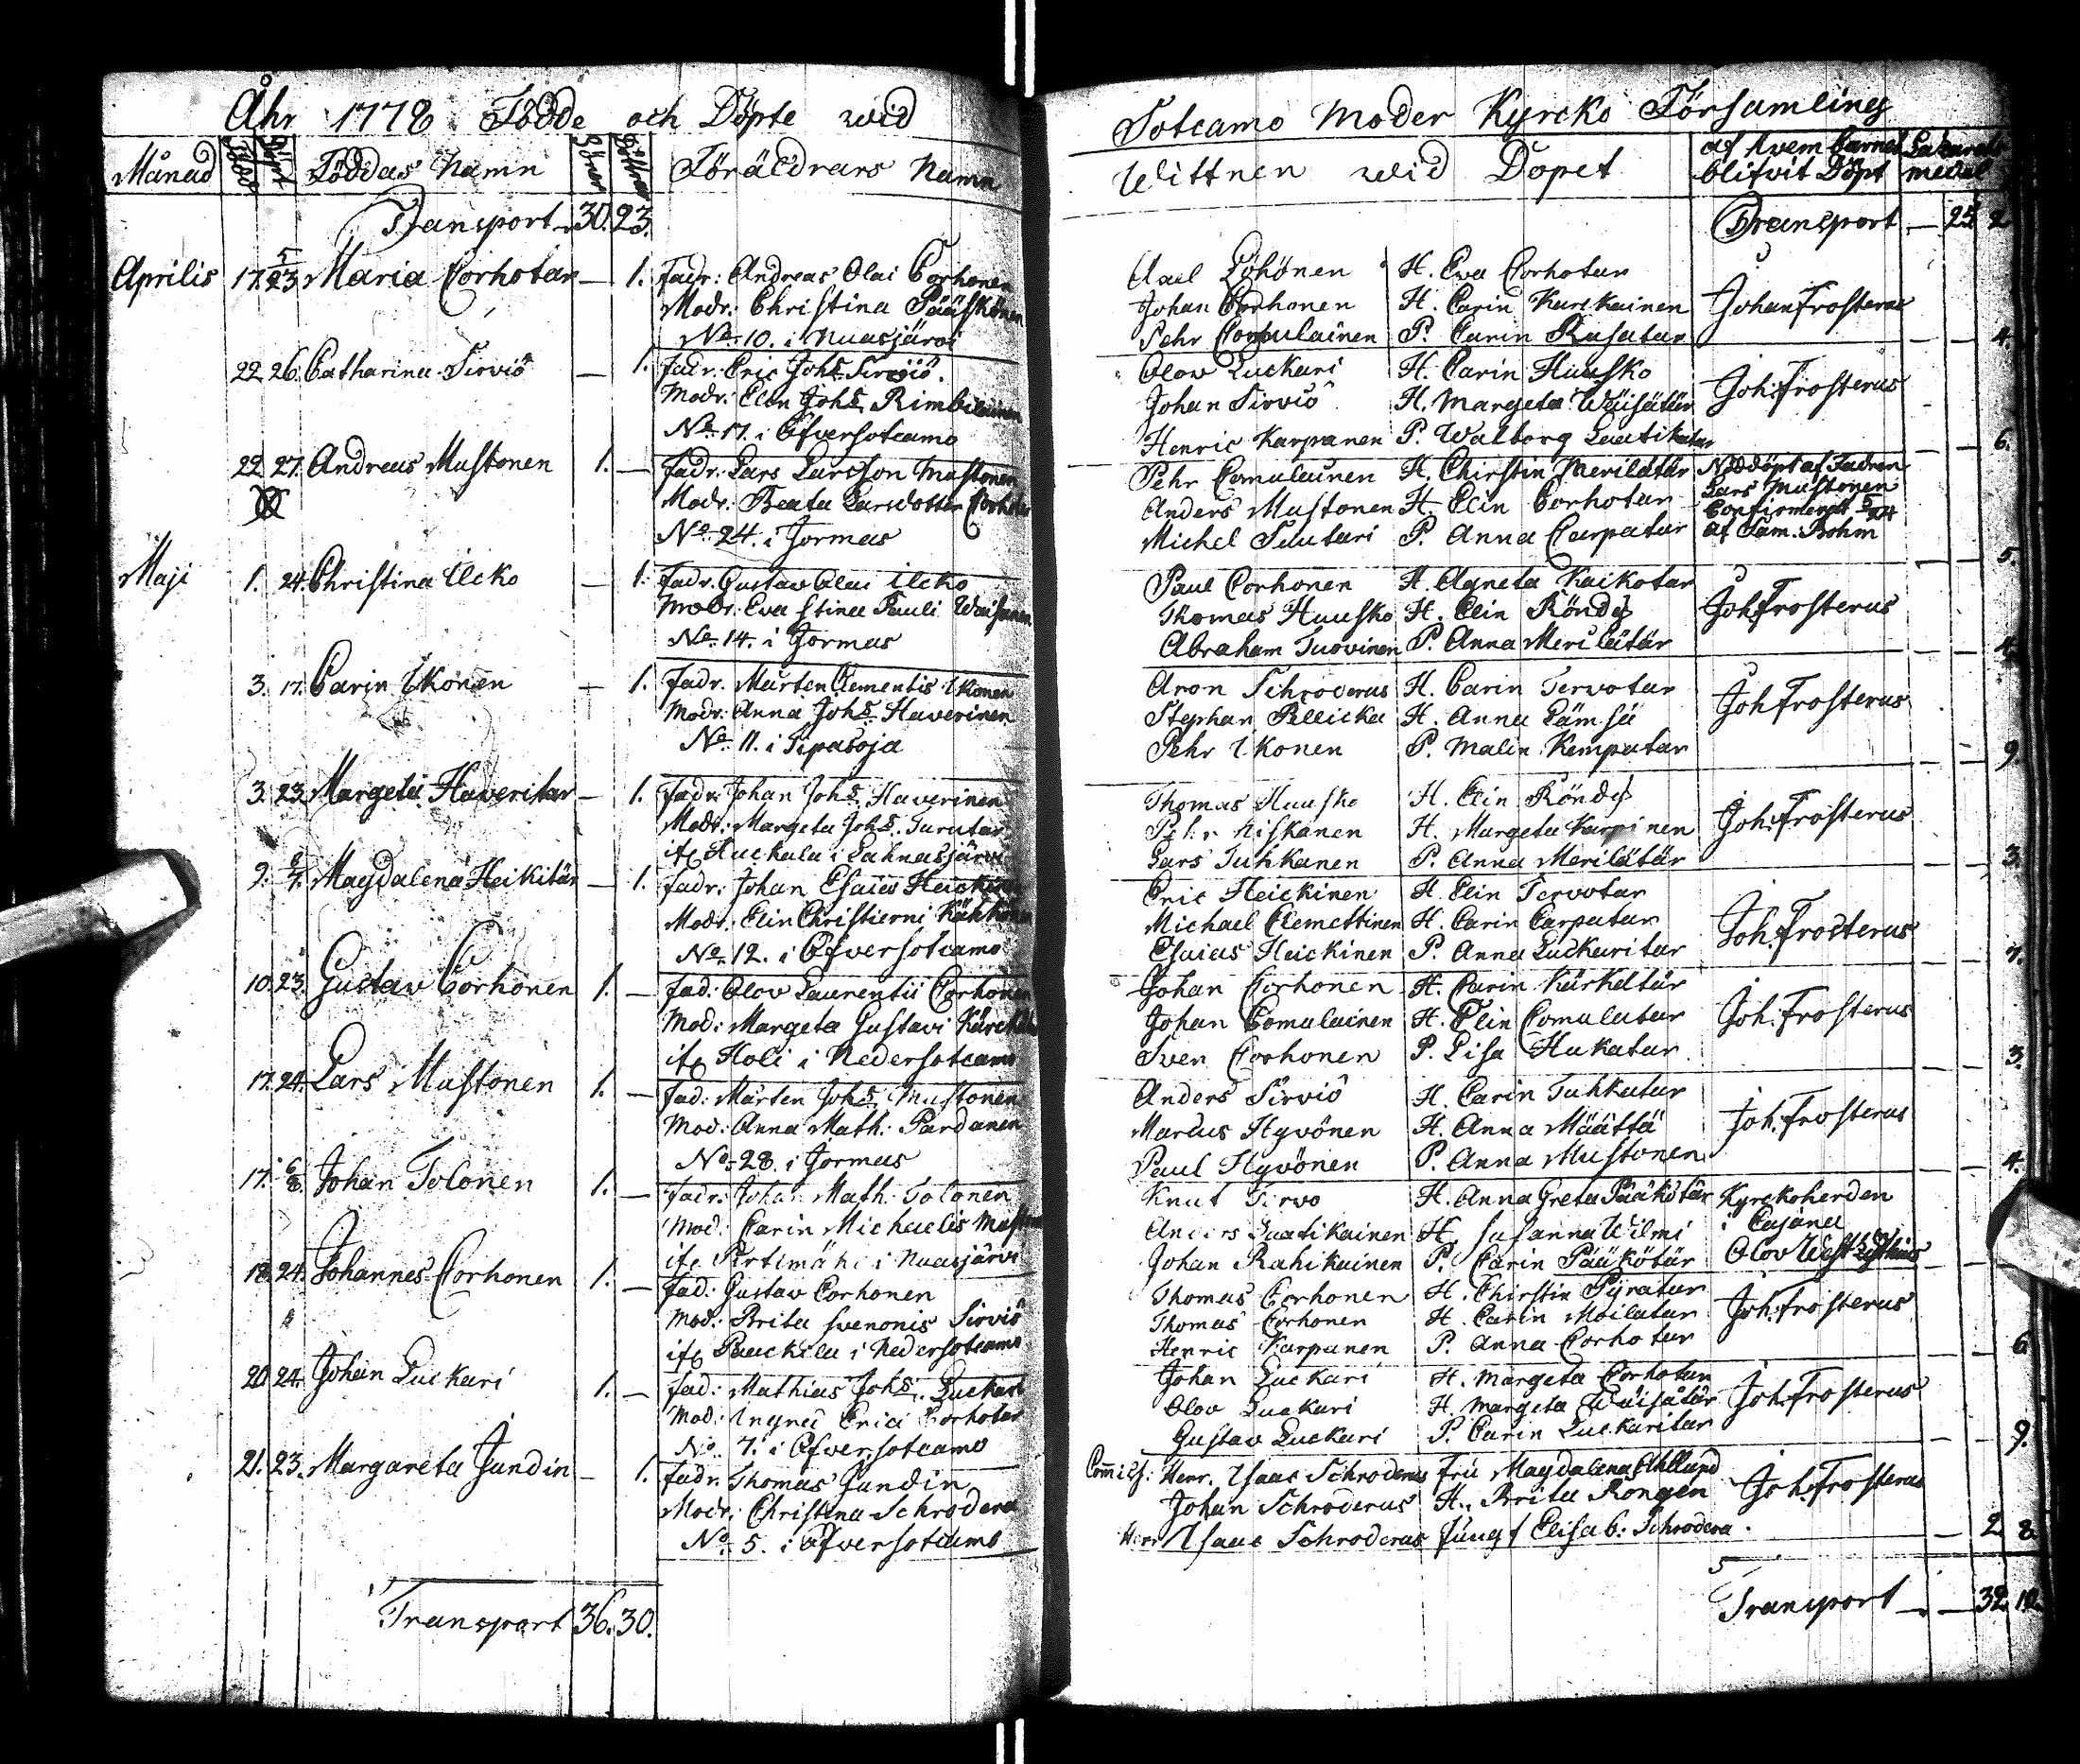 Åhr 1778 Födde och Döpte wid
Månad Född Döpt Föddas Namn Söner Döttrar Föräldrars Namn
Transport 30. 23.
Aprilis 17. 5/23 Maria Corhotar — 1. Fadr: Andreas Olai Corhonen
Modr: Christina Pääskönen
No 10. i Nuasjärvi
22. 26. Catharina Sirviö — 1. Fadr: Eric Johs Sirviö.
Modr: Elin Johs Rimbiläinen
No 17. i Öfversotcamo
22. 27. Andreas Mustonen 1. — Fadr: Lars Larsson Mustonen
Modr: Beata Larsdotter Corhotar
No 24. i Jormas
Maji 1. 24. Christina Ilcko — 1. Fadr. Gustav Olai Ilcko
Modr: Eva Stina Pauli Waisanen
No 14. i Jormas
3. 17. Carin Ikonen — 1. Fadr. Mårten Clementis Ikonen
Modr: Anna Johs Haverinen
No 11. i Tipasoja
3. 23. Margeta Haveritar — 1. Fadr: Johan Johs Haverinen
Modr: Margeta Johs. Turutar
itp Huckala i Lahnasjärvi
9. 8/7. Magdalena Heikitär — 1. Fadr: Johan Esaiæ Heickinen
Modr: Elin Christierni Käkkönen
No 12. i Öfversotcamo
10. 23. Gustav Corhonen 1. — Fad: Olov Laurentii Corhonen
Mod: Margeta Gustavi
itp Holi i Nedersotcamo
17. 24. Lars Mustonen 1. — Fad: Mårten Johs Mustonen
Mod: Anna Math: Pardanen
No 28. i Jormas
17. 6/8. Johan Tolonen 1. — Fadr: Joha: Math: Tolonen
Mod: Carin Michaelis
itp Pertimäki i Nuasjärvi
18. 24. Johannes Corhonen 1. — Fad: Gustav Corhonen
Mod: Brita Svenonis Sirviö
itp Pauckila i Nedersotcamo
20. 24. Johan Luckari 1. — Fad: Mathias Johs. Luckari
Mod: Ingrej Erici Corhotar
No 7. i Öfversotcamo
21. 23. Margareta Jundin — 1. Fadr. Thomas Jundin
Modr: Christina Schrodera
No 5. i Öfversotcamo
Transport 36. 30.
Sotcamo Moder Kyrcko Församling
Wittnen wid Dopet af hvem Barnet blifvit Döpt Lazarets medel
Transport — 25 2
Axel Löhönen H. Eva Corhotar
Johan Corhonen H. Carin Kurckainen Johan Frosterus
Pehr Comulainen P. Carin Rusatar — — 4.
Olov Luckari H. Carin Huusko
Johan Sirviö H. Margeta Wäisätär Joh: Frosterus
Henric Karpanen P. Walborg Laatikatar — — 6.
Pehr Comulainen H. Chirstin Merilätär Nöddöpt af Fadren
Anders Mustonen H. Elin Corhotar Lars Mustonen
Michel Suutari P. Anna Carpatar af Sam: Bohm
— — 5.
Paul Corhonen H. Agneta Kaikotar
Thomas Huusko H. Elin Röndy Joh. Frosterus
Abraham Tuovinen P. Anna Merilätär — — 4.
Aron Schroderus H. Carin Tervotar
Stephan Pellicka H. Anna Lämsä Joh Frosterus
Pehr Ikonen P. Malin Kemputar — — 9.
Thomas Huusko H. Elin Röndy
Pehr Niskanen H. Margeta Karpinen Joh: Frosterus
Lars Tuhkanen P. Anna Merilätär — — 3.
Eric Heickinen H. Elin Tervotar
Michael Clemettinen H. Carin Carpatar Joh. Frosterus
Esaias Heickinen P. Anna Luckaritar — — 7.
Johan Corhonen H. Carin Kärketär
Johan Comulainen H. Elin Comulatar Joh: Frosterus
Sven Corhonen P. Lisa Hukatar — — 3.
Anders Sirviö H. Carin Tuhkatar
Marcus Hyvönen H. Anna Määttä Joh. Frosterus
Paul Hyvönen P. Anna Mustonen — — 4.
Knut Tirvo H. Anna Greta Pääkötär Kyrckoherden
Anders Laatikainen H. Susanna Wilmi i Cajana
Johan Rahikainen P. Carin Pääkötär Olov
Thomas Corhonen H. Chirstin Pyratar
Thomas Corhonen H. Carin Moilatar Joh: Frosterus
Henric Karpanen P. Anna Corhotar — — 6
Johan Luckari H. Margeta Corhotar
Olov Luckari H. Margeta Wäisätär Joh. Frosterus
Gustav Luckari P. Carin Luckaritar — — 9.
Herr. Isaac Schroderus Fru Magdalena Ahllund
Johan Schroderus H. Brita Rongen Joh. Frosterus
Herr Isaac Schroderus Jungf Elisab: Schrodera. — 2. 8.
Transport — — 32. 12.